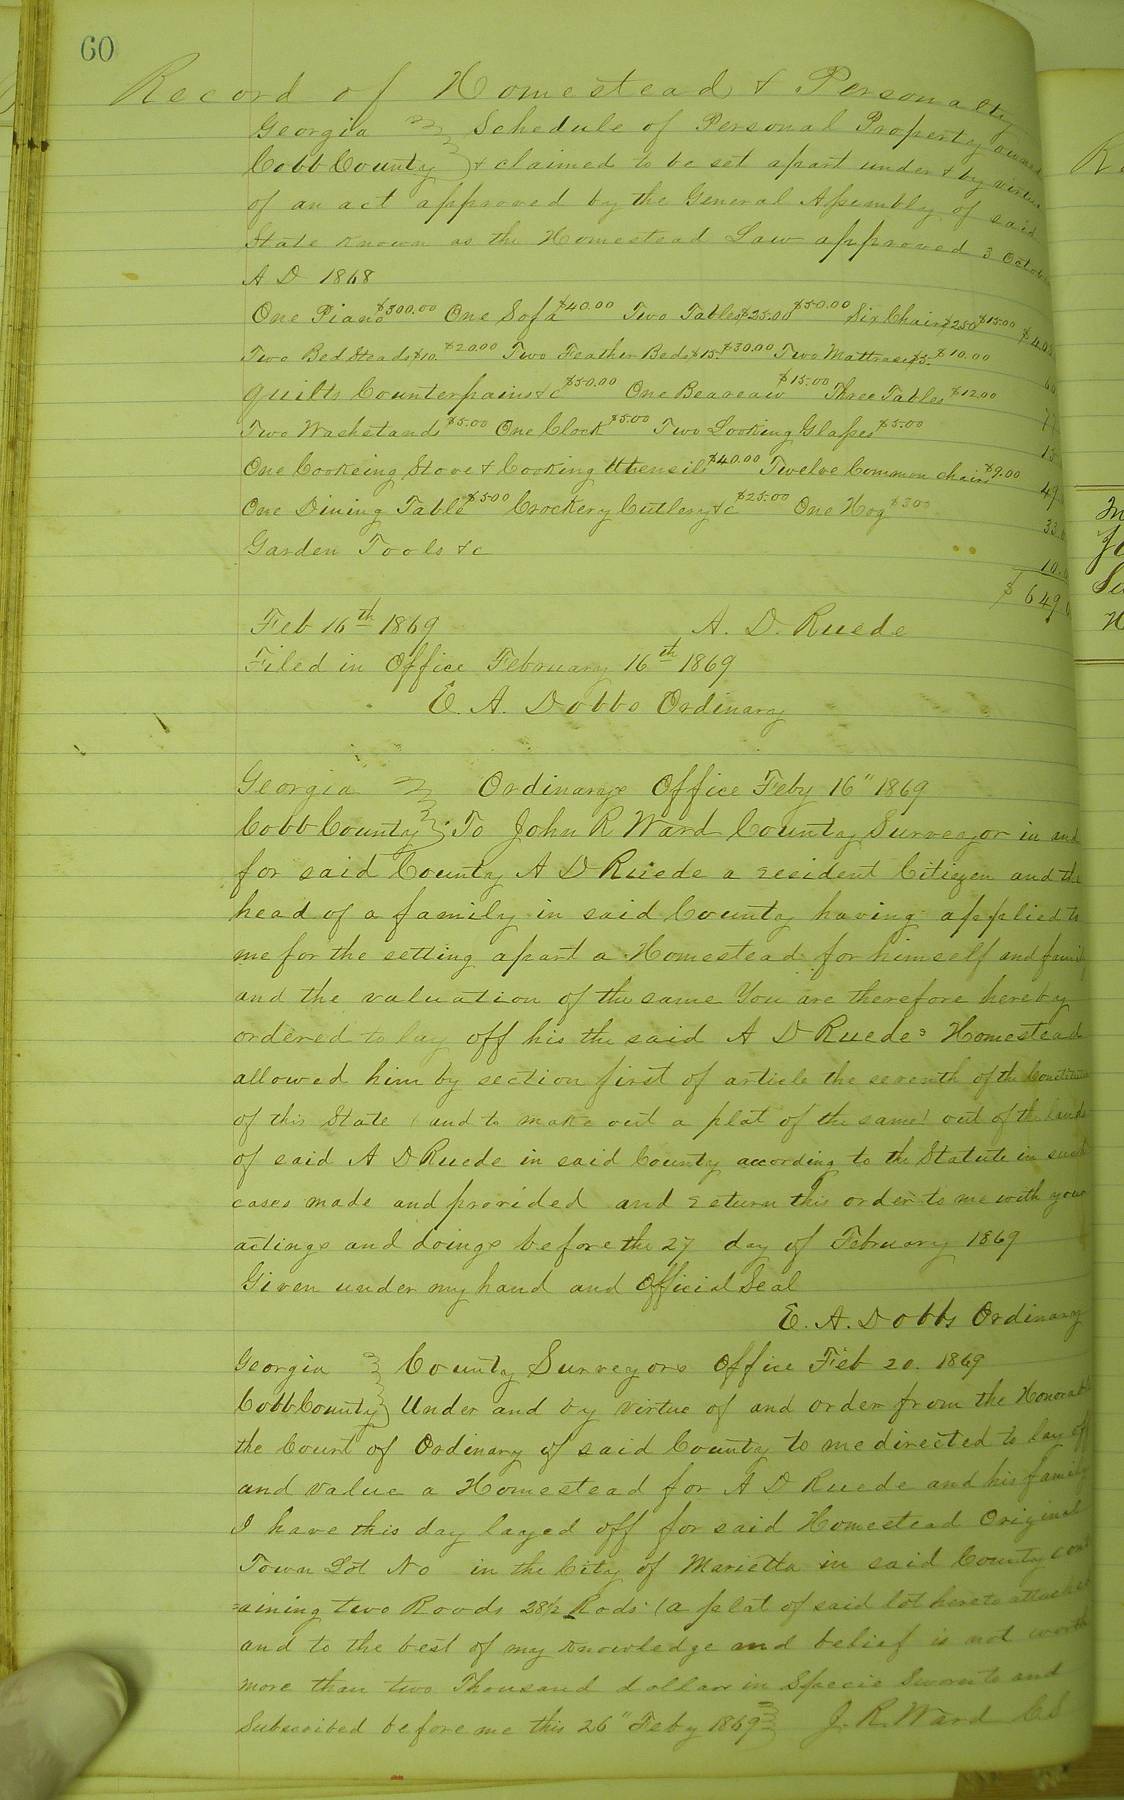 60
Record of Homestead & Personalty
Georgia } Schedule of Personal Property owned
Cobb County } & claimed to be set apart under & by virtue
of an act approved by the General Assembly of said
State known as the Homestead Law approved 3 October
A D 1868
One Piano $300.00 One Sofa $40.00 Two Tables $25.00 $50.00 Six Chairs $2.50 $15.00 $405
Two Bed Steads $10. $20.00 Two Feather Beds $15. $30.00 Two Mattrases $5. $10.00 60
quilts Counterpains &c $50.00 One Beareaw $15.00 Three Tables $12.00 77
Two Washstands $5.00 One Clock $5.00 Two Looking Glasses $5.00 15
One Cookeing Stove & Cooking Utensils $40.00 Twelve Common chairs $9.00 49
One Dining Table $5.00 Crockery Cutlery &c $25.00 One Hog $3.00 33.
Garden Tools &c 10.
$649
Feb 16th 1869 A. D. Ruede
Filed in Office February 16th 1869
E. A. Dobbs Ordinary
Georgia } Ordinarys Office Feby 16" 1869
Cobb County } To John R Ward County Surveyor in and
for said County A D Ruede a resident Citizen and the
head of a family in said County having applied to
me for the setting apart a Homestead for himself and family
and the valuation of the same You are therefore hereby
ordered to lay off his the said A D Ruedes Homestead
allowed him by section first of article the seventh of the Constitution
of this State (and to make out a plat of the same) out of the lands
of said A D Ruede in said County according to the Statute in such
cases made and provided and return this order to me with your
actings and doings before the 27 day of February 1869
Given under my hand and Official Seal
E. A. Dobbs Ordinary
Georgia } County Surveyors Office Feb 20. 1869
Cobb County } Under and by virtue of and order from the Honorable
the Court of Ordinary of said County to me directed to lay off
and value a Homestead for A D Ruede and his family
I have this day layed off for said Homestead Original
Town Lot No in the City of Marietta in said County cont
=aining two Roods 28½ Rods (a plat of said lot hereto attached
and to the best of my knowledge and belief is not worth
more than two Thousand dollars in Specie Sworn to and
Subscribed before me this 26" Feby 1869 } J. R. Ward CS